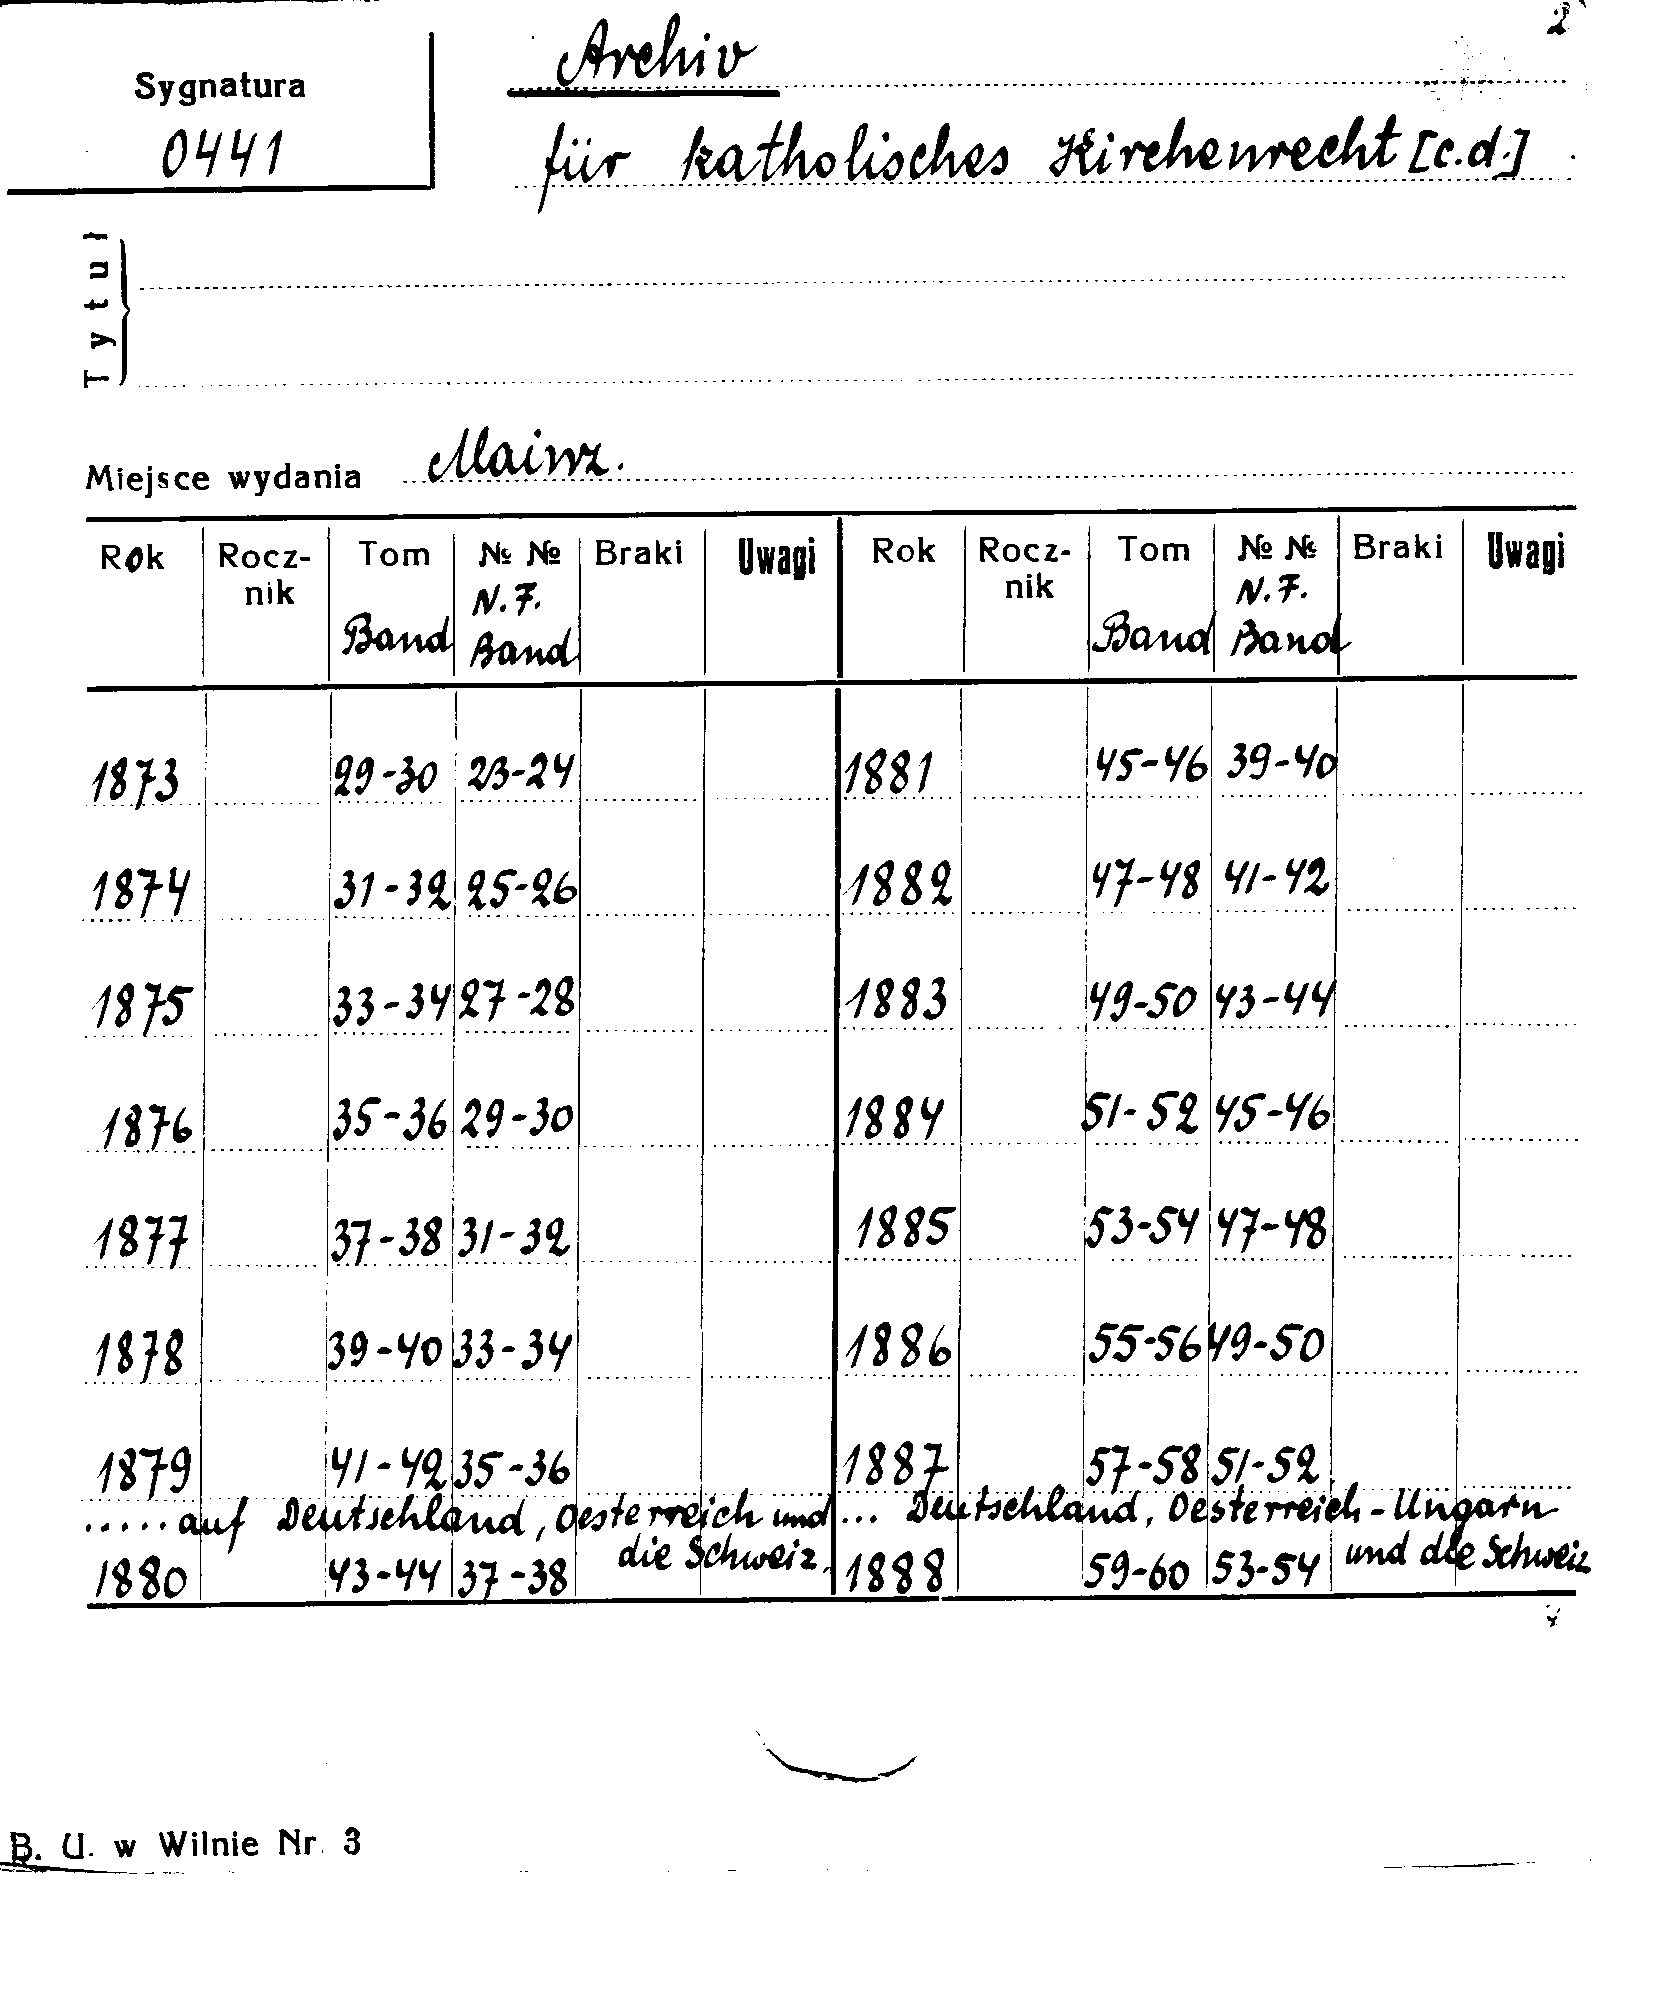 2
Archiv
Sygnatura
0441
für katholisches Kirchenrecht [c.d.]
Tytuł
Miejsce wydania Mainz.
Rok Rocz- Tom № № Braki Uwagi Rok Rocz- Tom № № Braki Uwagi
nik N.F. nik N.F.
Band Band Band Band
1873 29-30 23-24 1881 45-46 39-40
1874 31-32 25-26 1882 47-48 41-42
1875 33-34 27-28 1883 49-50 43-44
1876 35-36 29-30 1884 51-52 45-46
1877 37-38 31-32 1885 53-54 47-48
1878 39-40 33-34 1886 55-56 49-50
1879 41-42 35-36 1887 57-58 51-52
.....auf Deutschland, Oesterreich und ... Deutschland, Oesterreich-Ungarn
die Schweiz. und die Schweiz
1880 43-44 37-38 1888 59-60 53-54
B. U. w Wilnie Nr. 3